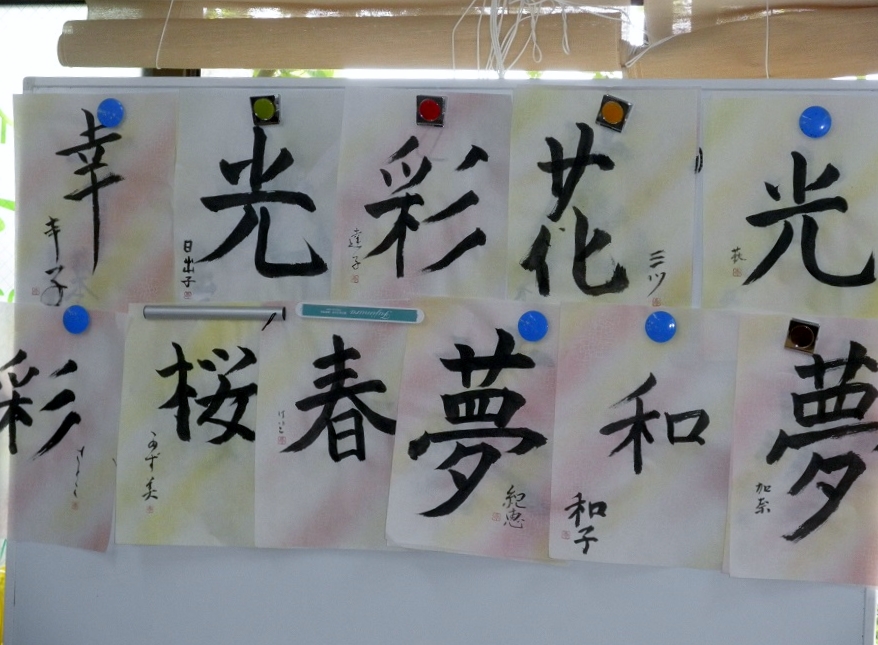 幸
幸子
光
日出子
彩
達子
花
三ツ
光
萩
彩
桜
春
けい子
夢
紀恵
和
和子
夢
加奈